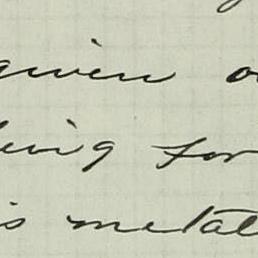 given o
ing for
is metal